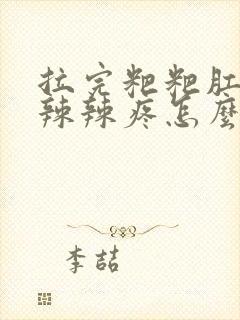 拉完粑粑肛
辣辣疼怎麼
李喆